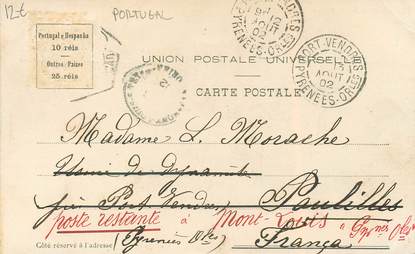 12€
PORTUGAL
Portugal e Hespanha
10 réis
Outros Paizes
25 réis
UNION POSTALE UNIVERSELLE
CARTE POSTALE
PORT-VENDRES
AOUT
02
PYRÉNÉES-ORLES
Madame L. Morache
Usine de dynamite
par Port Vendres Paulilles
poste restante à Mont-Louis "Pyrnes Oles"
Côté réservé à l'adresse (Pyrénées Oles) França